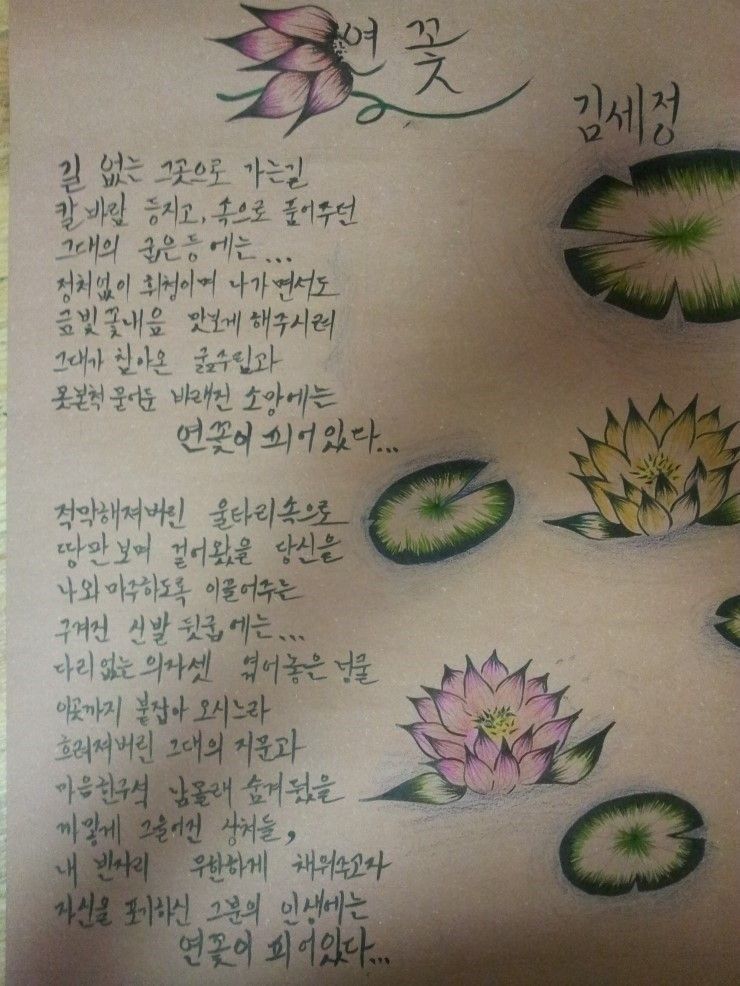 연꽃
김세정
길 없는 그곳으로 가는길
칼바람 등지고, 속으로 품어주던
그대의 굽은등에는...
정처없이 휘청이며 나가면서도
금빛꽃내음 맛보게 해주시려
그대가 참아온 굶주림과
못본척 물어둔 바래진 소망에는
연꽃이 피어있다...
적막해져버린 울타리속으로
땅만보며 걸어왔을 당신을
나와 마주하도록 이끌어주는
구겨진 신발 뒷굽에는...
다리없는의자셋 엮어놓은 넝쿨
이곳까지 붙잡아 오시느라
흐려져버린 그대의 지문과
마음한구석 남몰래 숨겨뒀을
까맣게 그을어진 상처들,
내 빈자리 무한하게 채워주고자
자신을 포기하신 그분의 인생에는
연꽃이 피어있다...